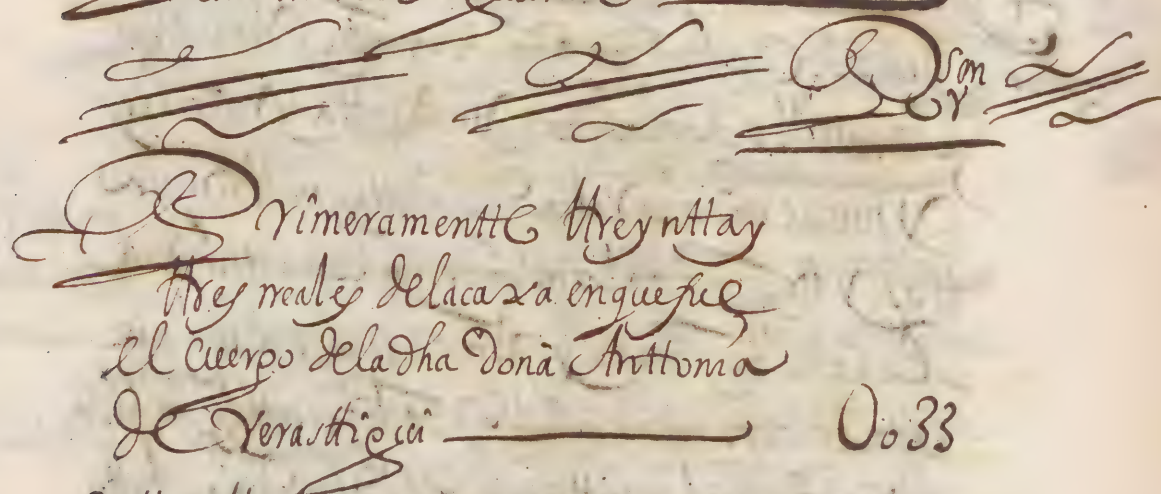 Rson
V
Primeramentte ttreynttay
ttres rreales delacaxa enquefue
el cuerpo deladha Dona Anttonia
de Verasttigui
Uo33